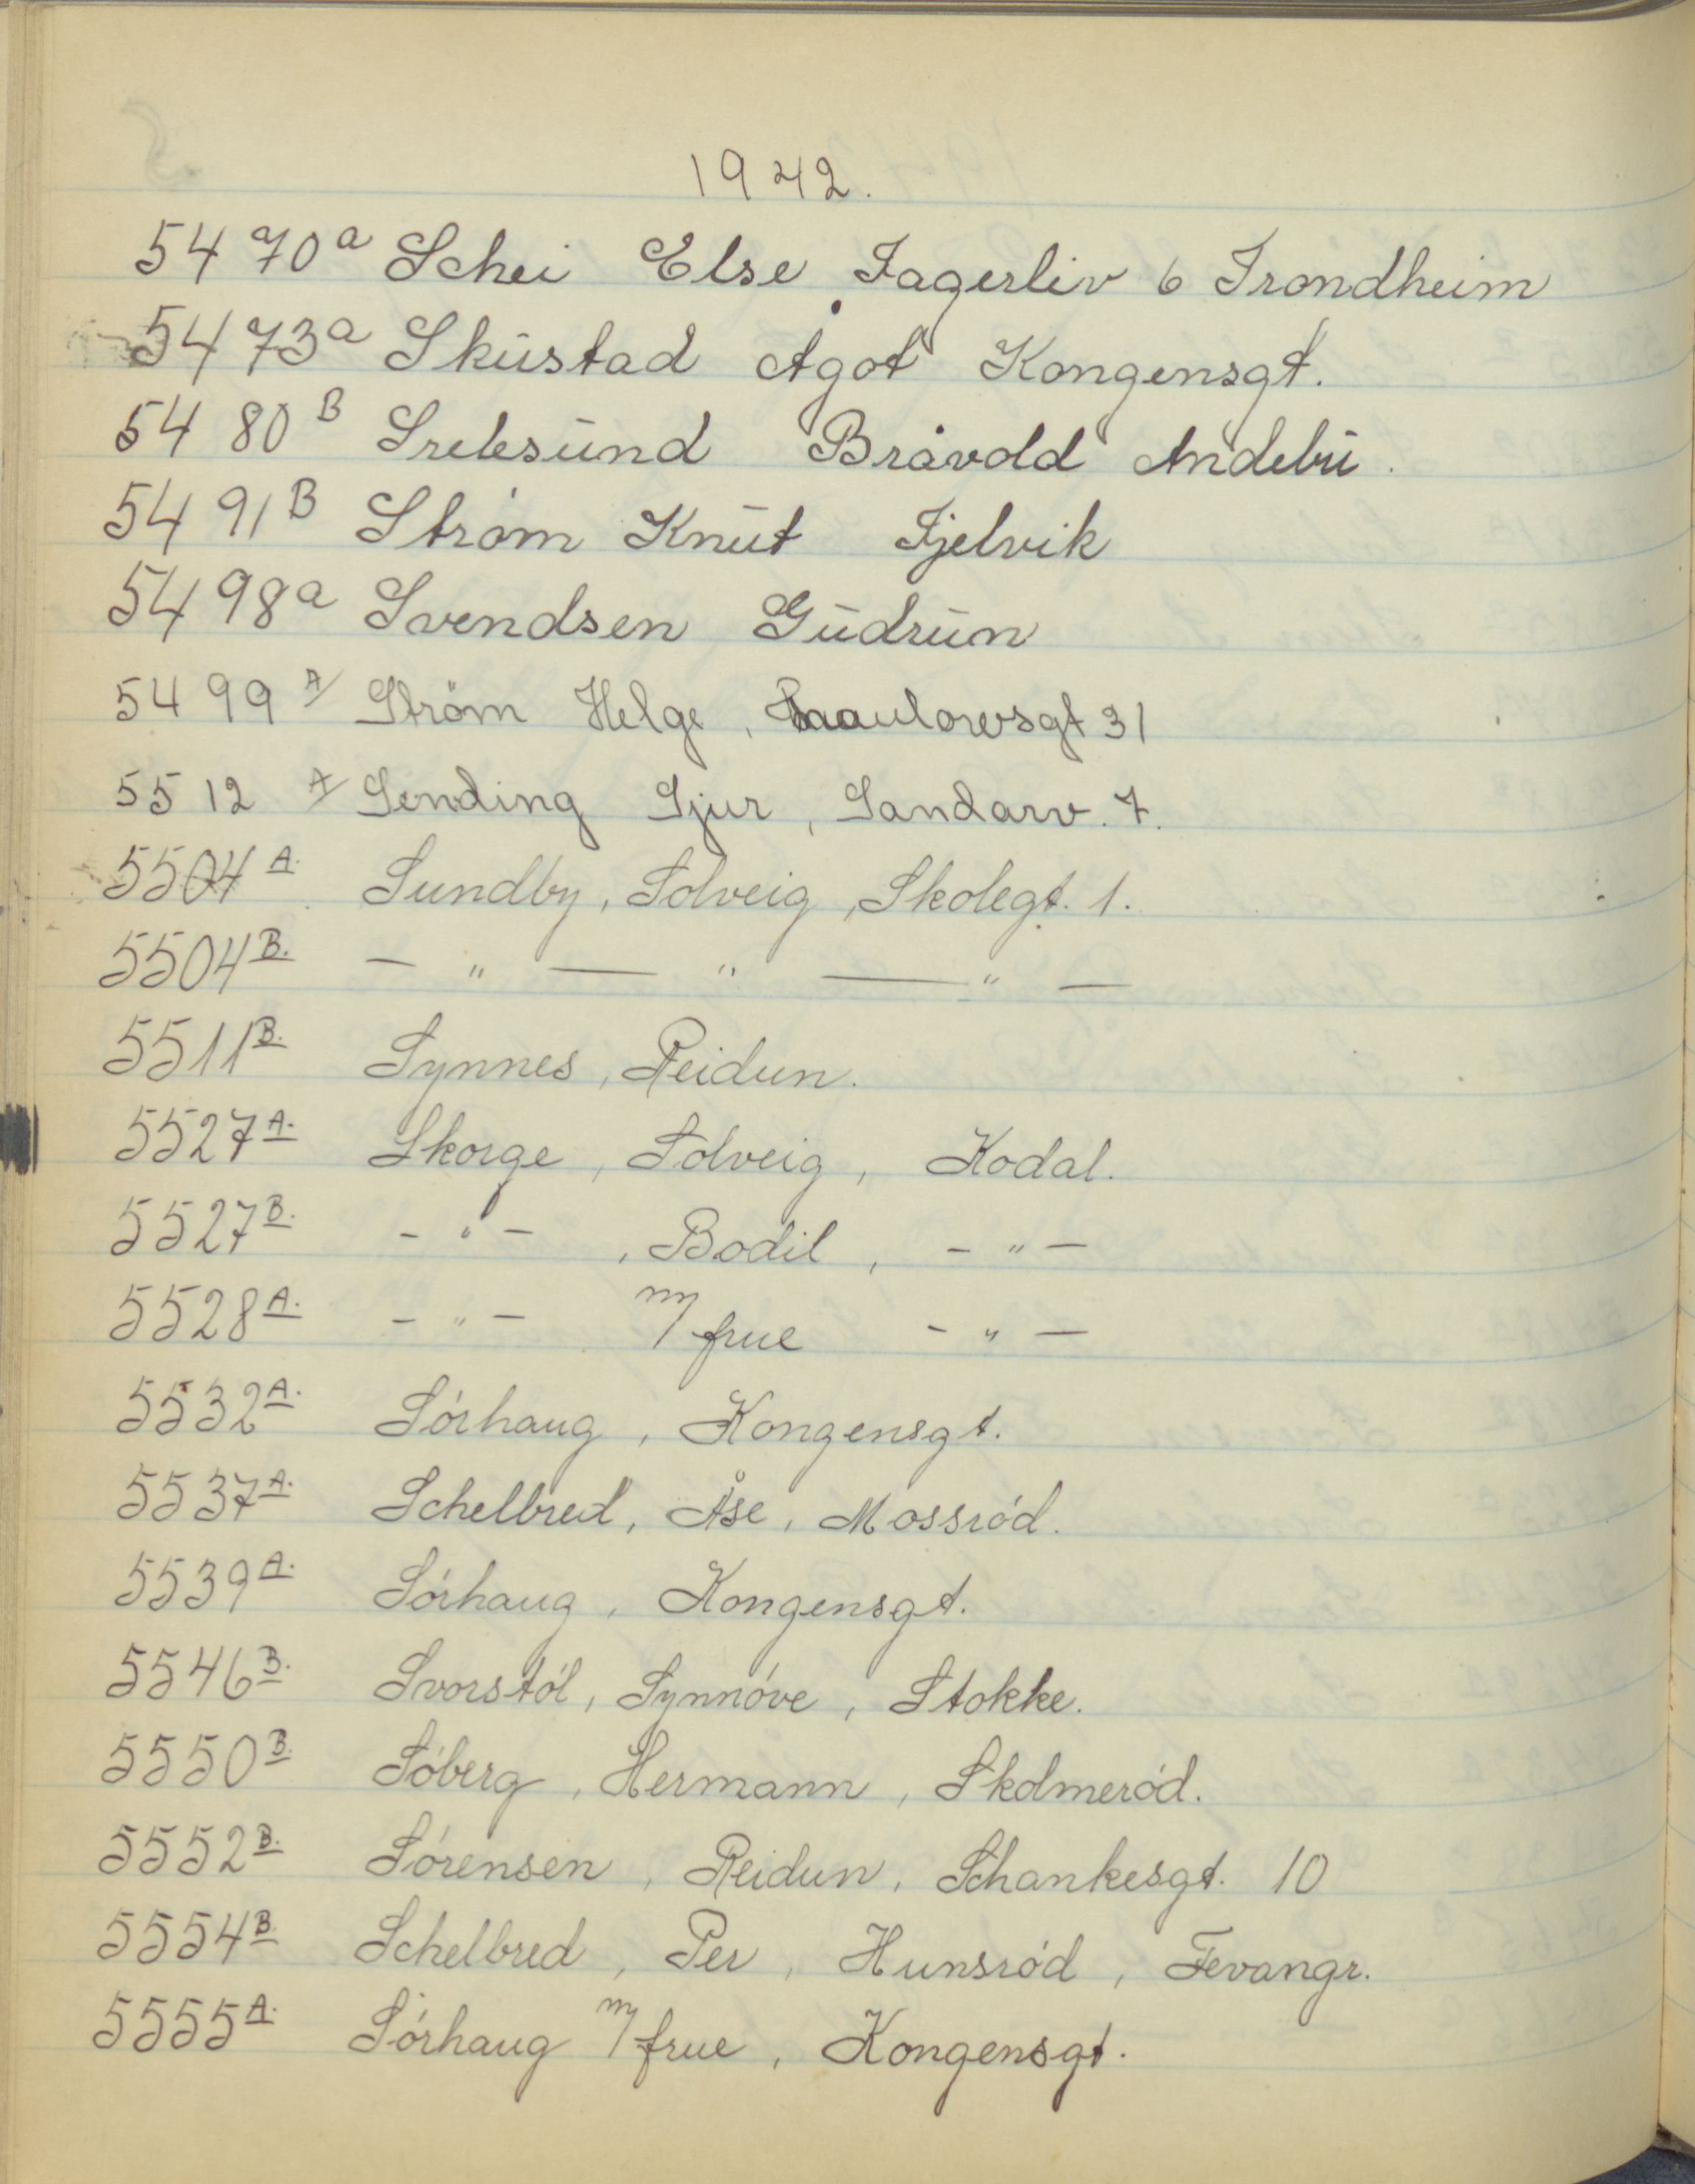 1942.
5470a Schei Else Fagerliv 6 Trondheim
5473a Skustad Agot Kongensgt.
5480B Srelesund Bråvold Andebu.
5491B Strøm Knut Fjelvik
5498a Svendsen Gudrun
5499A/ Strøm Helge, sgt 31
5512 A/ Sending Sjur, Sandarv. 7.
5504A. Sundby, Solveig, Skolegt. 1.
5504B. — " — " — " —
5511B. Synnes, Reidun.
5527A. Skorge, Solveig, Kodal.
5527B. - " - , Bodil, - " -
5528A. - " - m/frue - " -
5532A. Sórhaug, Kongensgt.
5537A. Schelbred, Åse, Mossród.
5539A. Sórhaug, Kongensgt.
5546B. Svorstól, Synnóve, Stokke.
5550B. Sóberg, Hermann, Skolmeród.
5552B. Sórensen, Reidun, Schankesgt. 10
5554B. Schelbred, Per, Hunsród, Fevangr.
5555A. Sórhaug m/frue, Kongensgt.